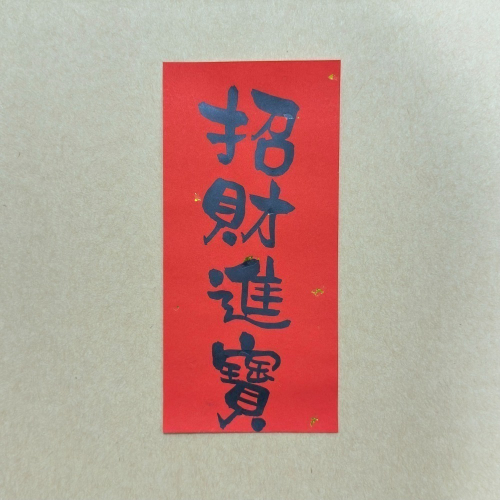 招財進寶